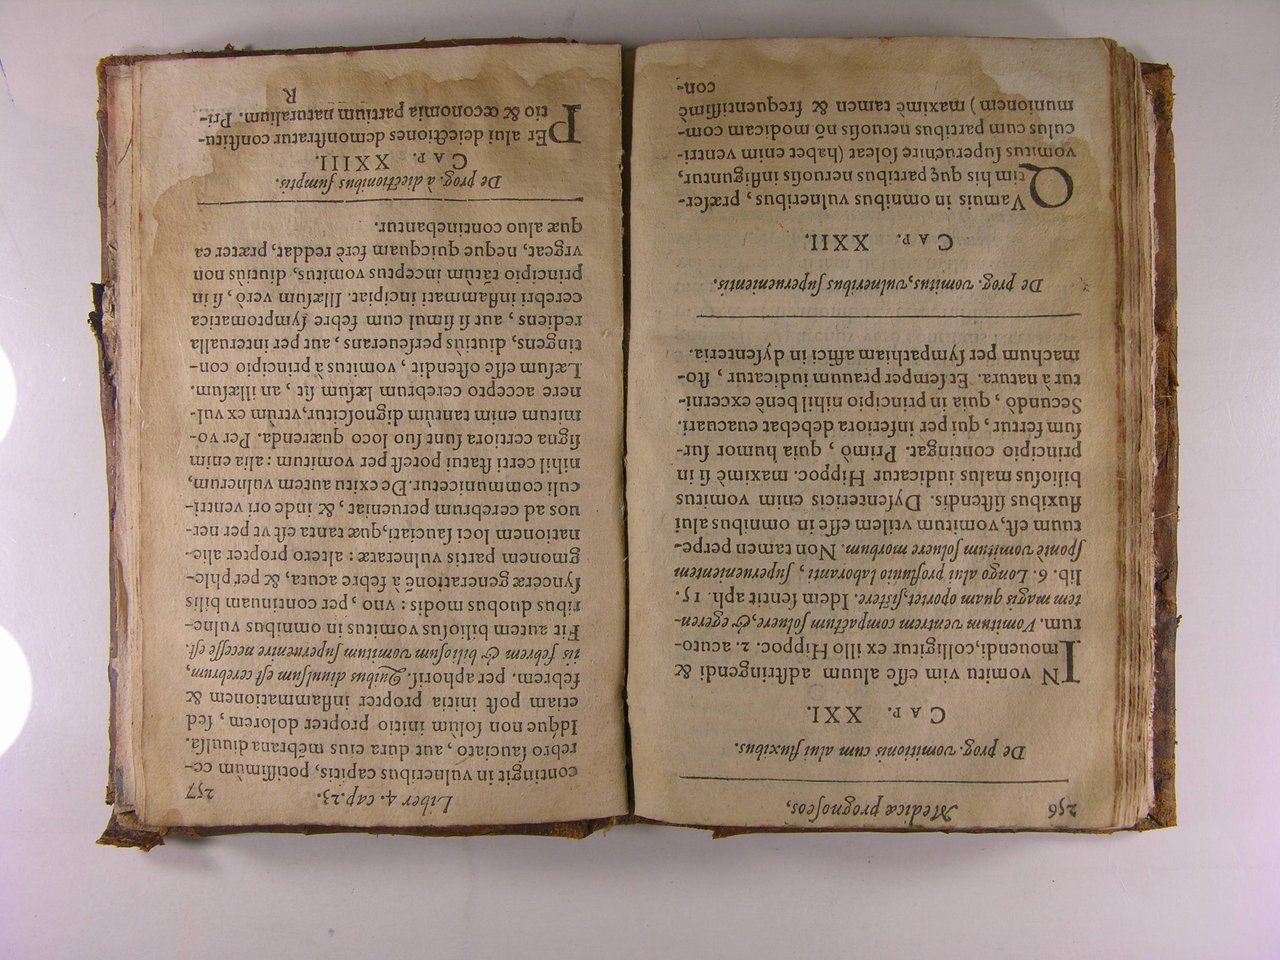 256 Medicæ prognoſeos,
De prog. vomitionis cum alui fluxibus.
CAP. XXI.
IN vomitu vim eſſe aluum adſtringendi &
mouendi, colligitur ex illo Hippoc. 2. acuto-
rum. Vomitum ventrem compactum ſoluere, & egeren-
tem magis quam oportet, ſiſtere. Idem ſentit aph. 15.
lib. 6. Longo alui profluuio laboranti, ſuperuenientem
ſpōtè vomitum ſoluere morbum. Non tamen perpe-
tuum eſt, vomitum vtilem eſſe in omnibus alui
fluxibus ſiſtendis. Dyſentericis enim vomitus
bilioſus malus iudicatur Hippoc. maximè ſi in
principio contingat. Primò, quia humor ſur-
ſum fertur, qui per inferiora debebat euacuari.
Secundò, quia in principio nihil benè excerni-
tur à natura. Et ſemper prauum iudicatur, ſto-
machum per ſympathiam affici in dyſenteria.
De prog. vomitus, vulneribus ſuperuenientis.
CAP. XXII.
QVamuis in omnibus vulneribus, præſer-
tim his quę partibus neruoſis infliguntur,
vomitus ſuperuenire ſoleat (habet enim ventri-
culus cum partibus neruoſis nō modicam com-
munionem) maximè tamen & frequentiſſimè
con-
Liber 4. cap. 23. 257
contingit in vulneribus capitis, potiſſimùm ce-
rebro ſauciato, aut dura eius mēbrana diuulſa.
Idque non ſolùm initio propter dolorem, ſed
etiam poſt initia propter inflammationem &
febrem. per aphoriſ. Quibus diuulſum eſt cerebrum,
iis febrem & bilioſum vomitum ſuperuenire neceſſe eſt.
Fit autem bilioſus vomitus in omnibus vulne-
ribus duobus modis: vno, per continuam bilis
ſynceræ generationē à febre acuta, & per phle-
gmonem partis vulneratæ: altero propter alie-
nationem loci ſauciati, quæ tanta eſt vt per ner-
uos ad cerebrum perueniat, & inde ori ventri-
culi communicetur. De exitu autem vulnerum,
nihil certi ſtatui poteſt per vomitum: alia enim
ſigna certiora ſunt ſuo loco quærenda. Per vo-
mitum enim tantùm dignoſcitur, vtrùm ex vul-
nere accepto cerebrum læſum ſit, an illæſum.
Læſum eſſe oſtendit, vomitus à principio con-
tingens, diutiùs perſeuerans, aut per interualla
rediens, aut ſi ſimul cum febre ſymptomatica
cerebri inflammati incipiat. Illæſum verò, ſi in
principio tātùm inceptus vomitus, diutiùs non
vrgeat, neque quicquam ferè reddat, præter ea
quæ aluo continebantur.
De prog. à dieƈtionibus ſumptis.
CAP. XXIII.
PEr alui deiectiones demonſtratur conſtitu-
tio & œconomia partium naturalium. Pri-
R